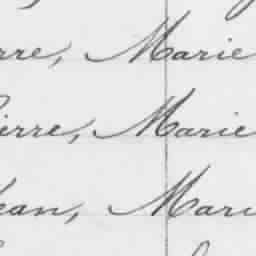 rre, Marie
ierre, Marie
ean, Mari